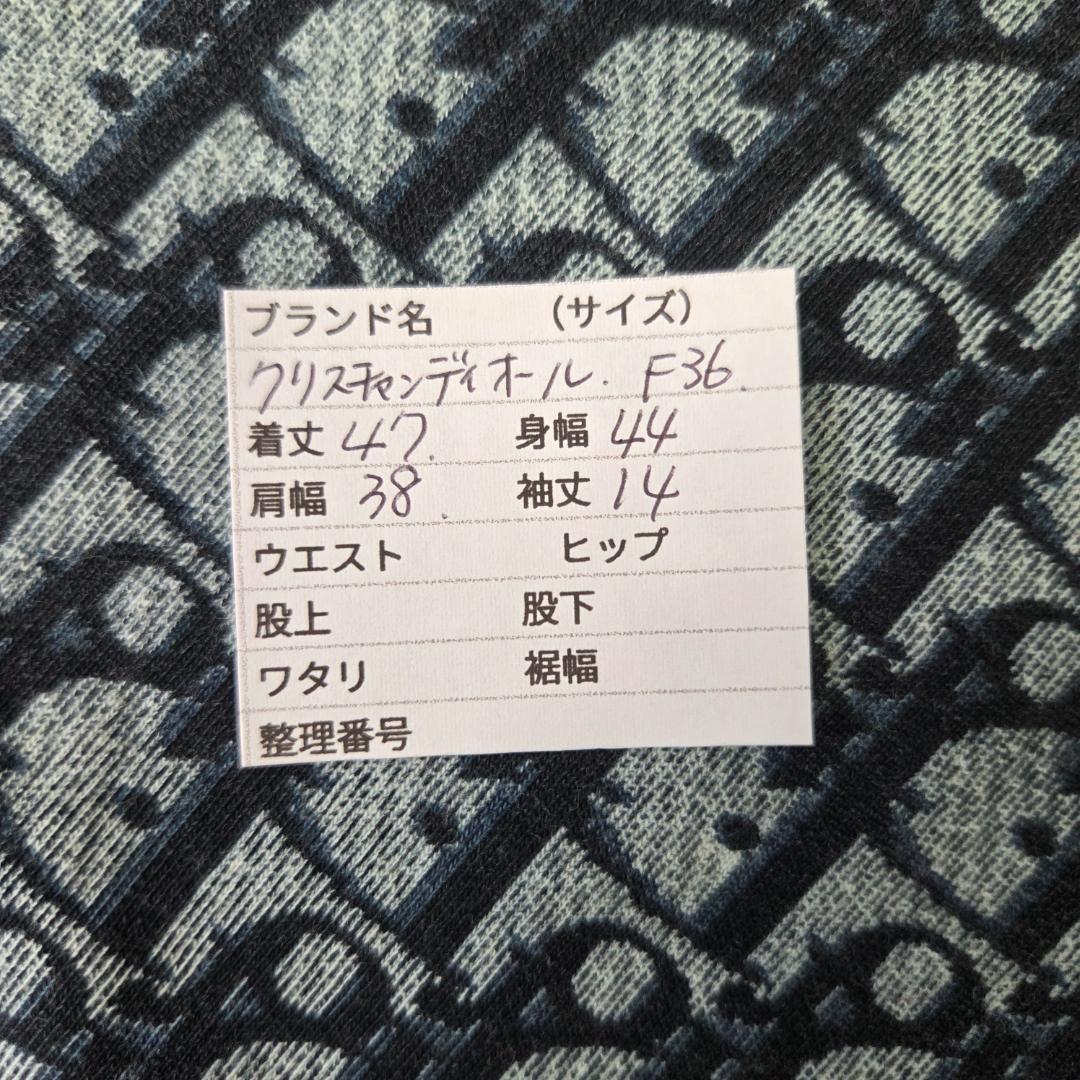 ブランド名 (サイズ)
クリスチャンディオール. F36.
着丈 47. 身幅 44
肩幅 38. 袖丈 14
ウエスト ヒップ
股上 股下
ワタリ 裾幅
整理番号